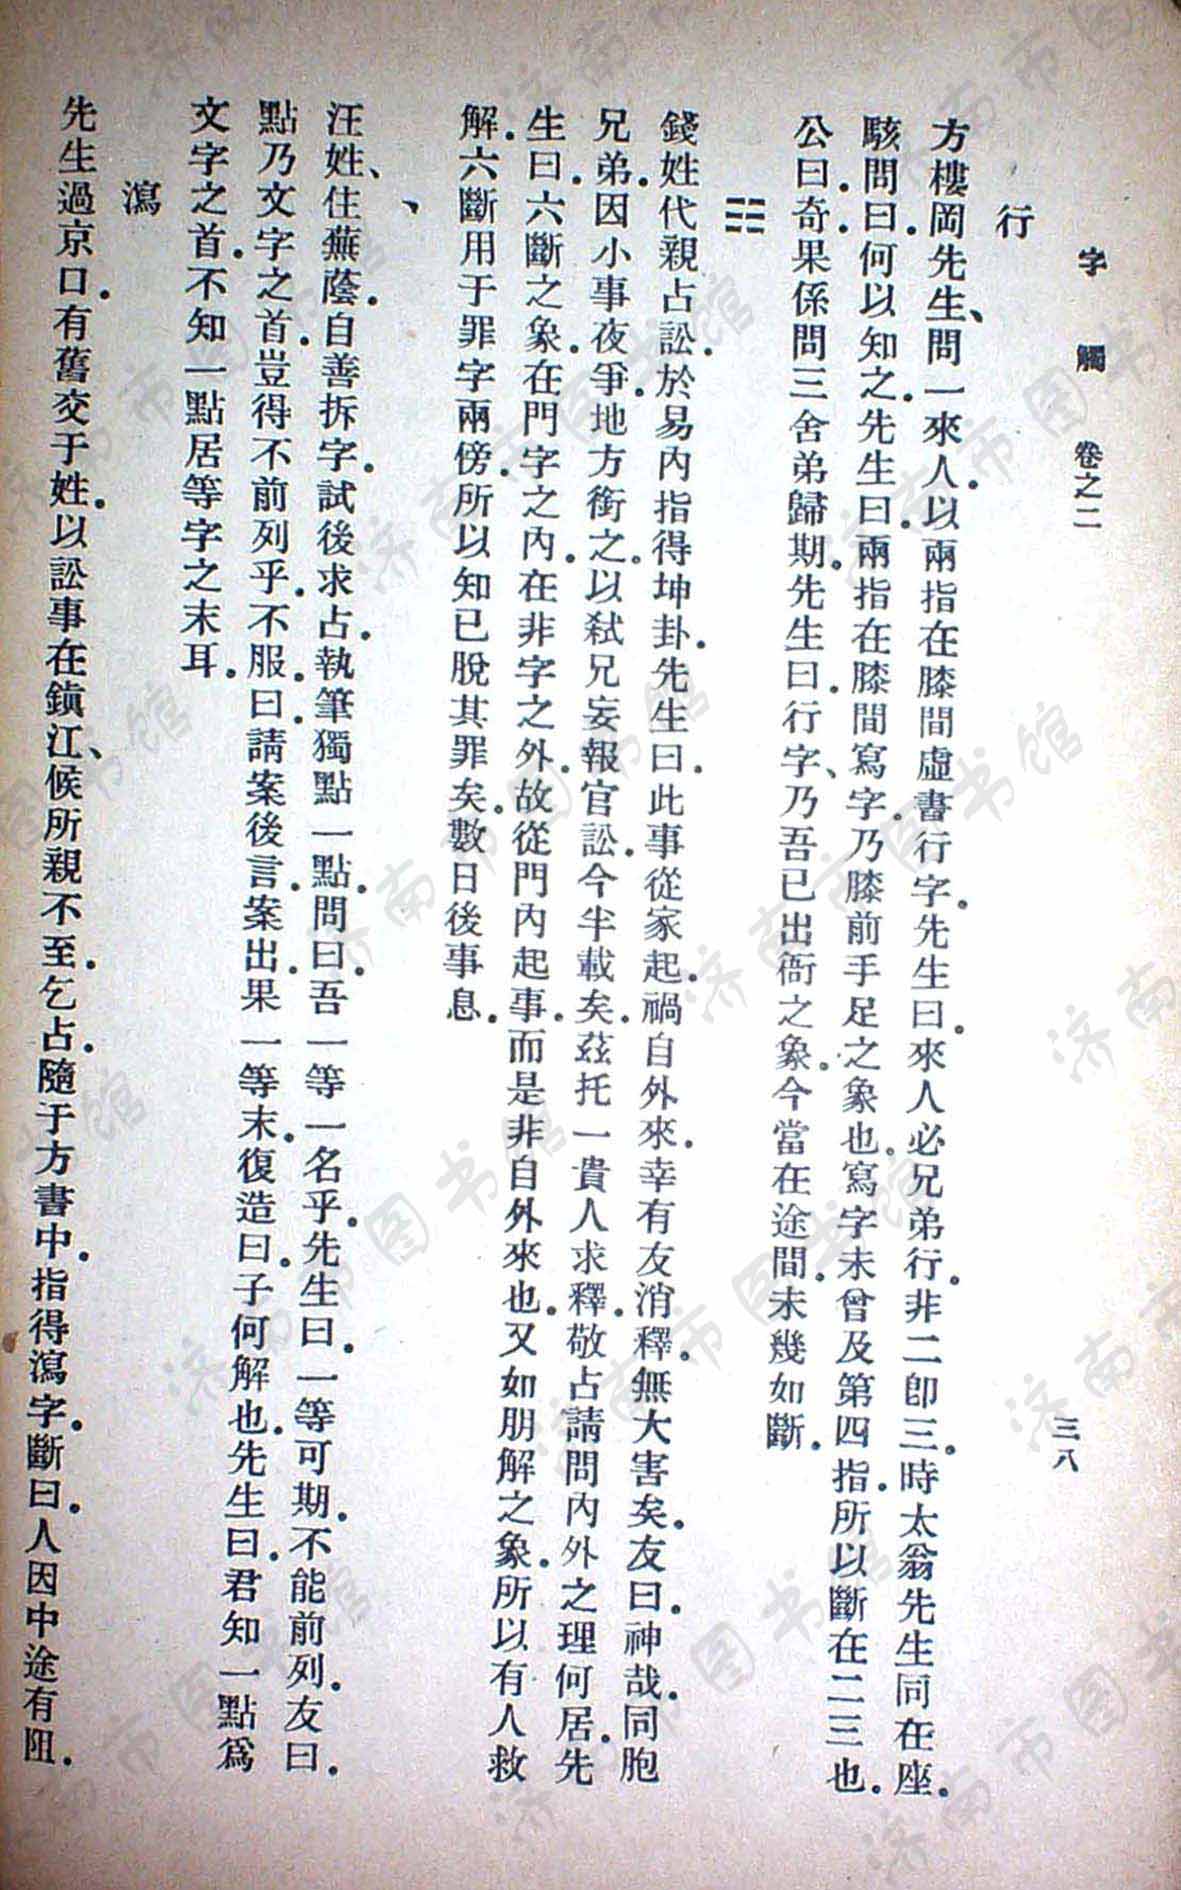 字觸 卷之二 三八
行
方樓岡先生、問一來人。以兩指在膝間虛書行字。先生曰。來人必兄弟行。非二卽三。時太翁先生同在座。
駭問曰。何以知之。先生曰。兩指在膝間寫字。乃膝前手足之象也。寫字未曾及第四指。所以斷在二三也。
公曰。奇果係問三舍弟歸期。先生曰。行字、乃吾已出衙之象。今當在途間。未幾如斷。
☷
錢姓代親占訟。於易內指得坤卦。先生曰。此事從家起。禍自外來。幸有友消釋。無大害矣。友曰。神哉。同胞
兄弟。因小事夜爭。地方銜之。以弒兄妄報官訟。今半載矣。茲托一貴人求釋。敬占請問內外之理何居。先
生曰。六斷之象。在門字之內。在非字之外。故從門內起事。而是非自外來也。又如朋解之象。所以有人救
解。六斷用于罪字兩傍。所以知已脫其罪矣。數日後事息。
丶
汪姓、住蕪蔭。自善拆字。試後求占。執筆獨點一點。問曰。吾一等一名乎。先生曰。一等可期。不能前列。友曰。
點乃文字之首。豈得不前列乎。不服。曰。請案後言。案出。果一等末。復造曰。子何解也。先生曰。君知一點爲
文字之首。不知一點居等字之末耳。
瀉
先生過京口。有舊交于姓。以訟事在鎮江、候所親不至。乞占。隨于方書中。指得瀉字。斷曰。人因中途有阻。
济南市图书馆